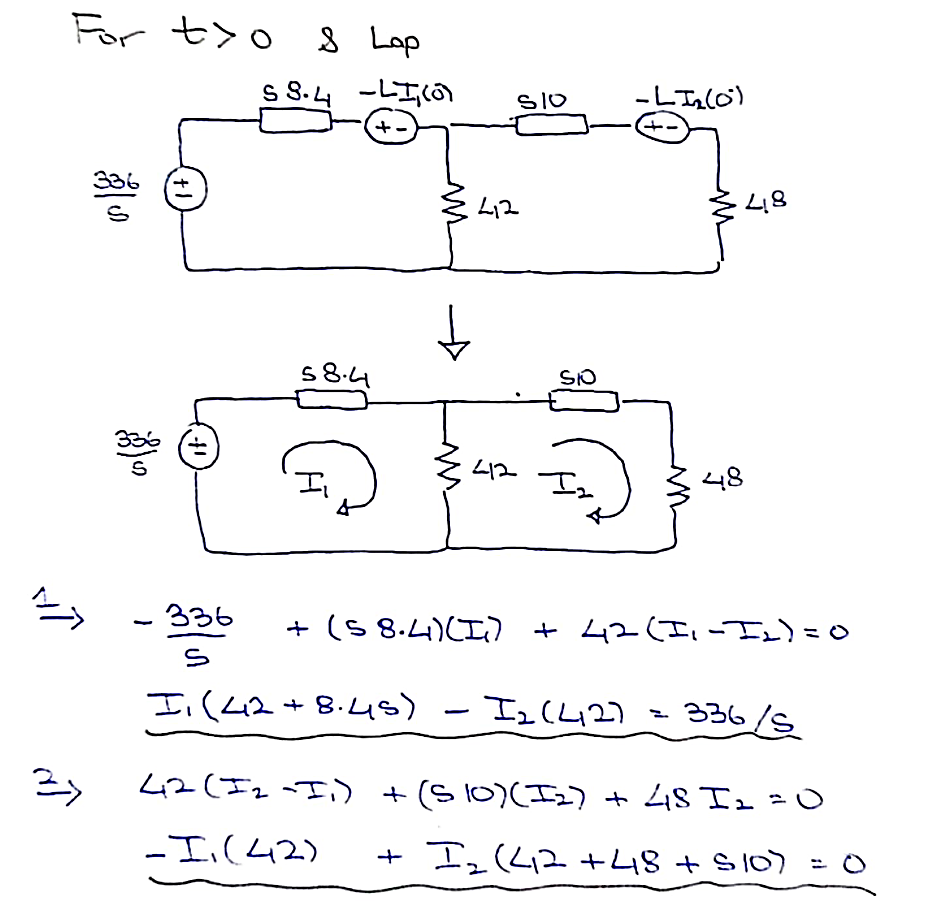 For t>0 & Lap
S 8.4 -LI₁(0⁻) S10 -LI₂(0⁻)
+ - + -
336/S + - 42 48
S 8.4 S10
336/S + - I₁ 42 I₂ 48
1⇒ - 336/S + (S 8.4)(I₁) + 42 (I₁ - I₂) = 0
I₁(42 + 8.4S) - I₂(42) = 336/S
2⇒ 42(I₂ - I₁) + (S 10)(I₂) + 48 I₂ = 0
- I₁(42) + I₂(42 + 48 + S10) = 0